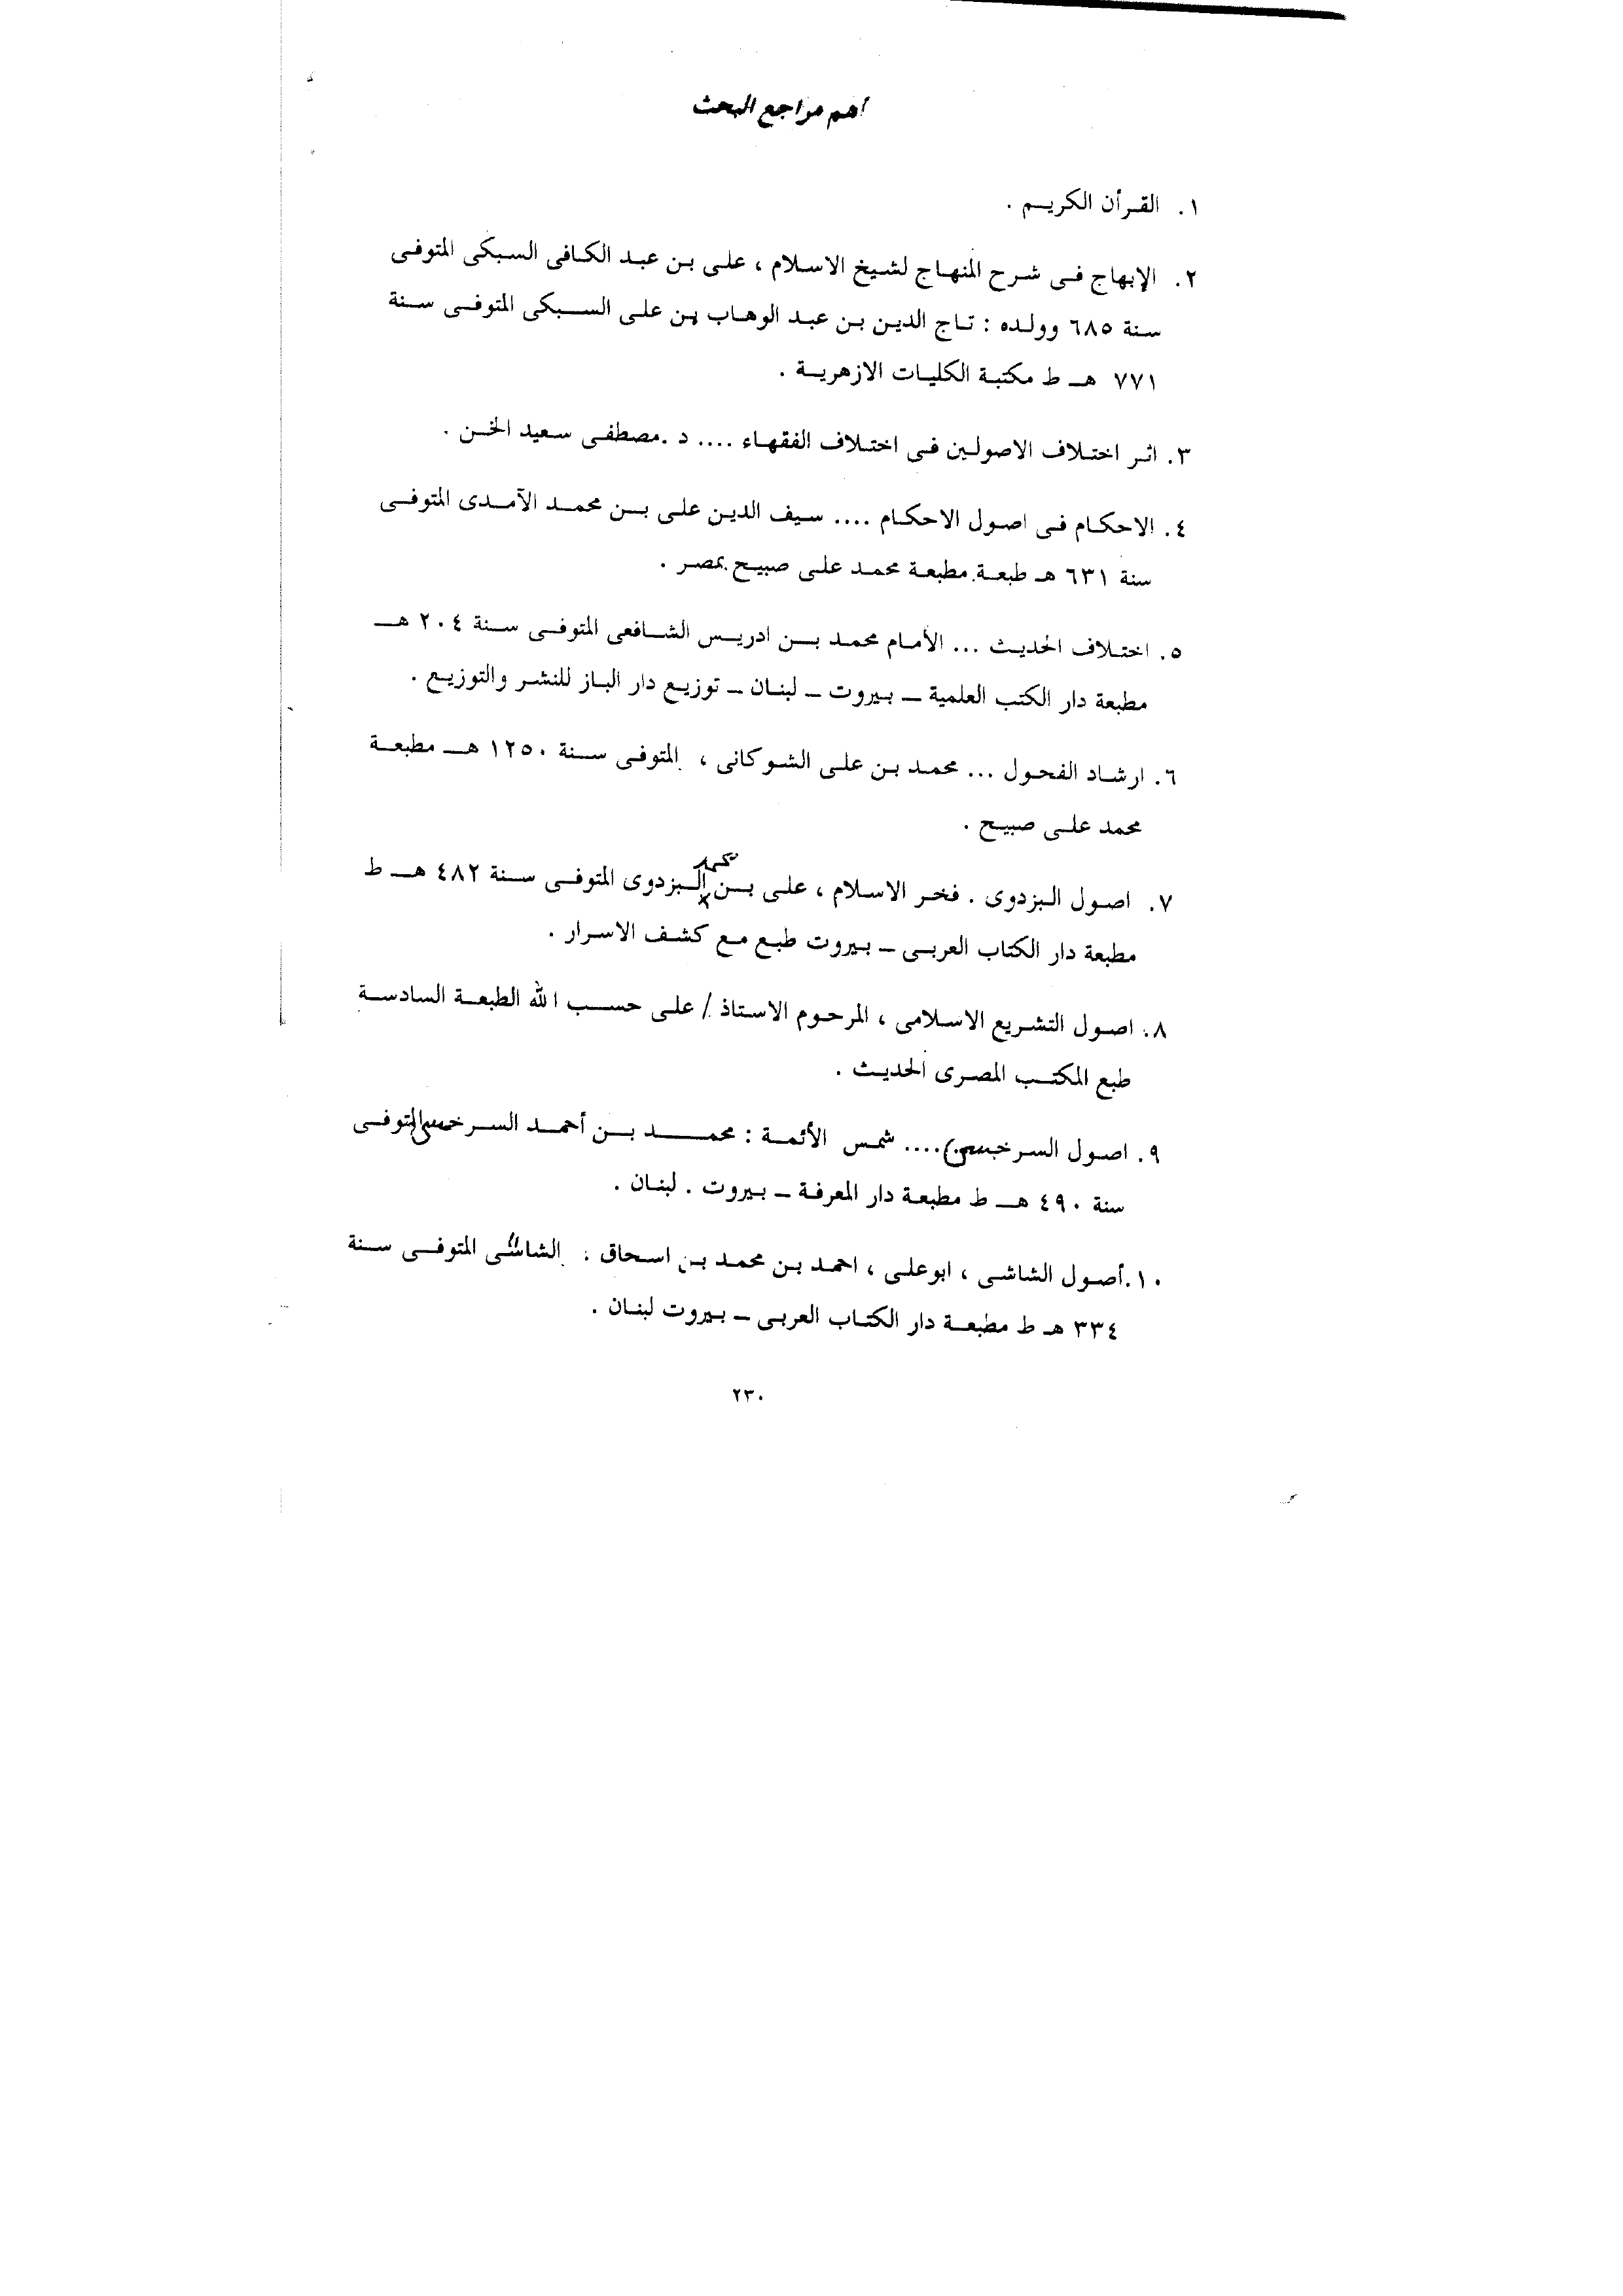 أهم مراجع البحث
١. القرأن الكريم .
٢. الإبهاج فى شرح المنهاج لشيخ الاسلام ، على بن عبد الكافى السبكى المتوفى
سنة ٦٨٥ وولده : تاج الدين بن عبد الوهاب بن على السبكى المتوفى سنة
٧٧١ هـ ط مكتبة الكليات الازهرية .
٣. اثر اختلاف الاصولين فى اختلاف الفقهاء .... د .مصطفى سعيد الخن .
٤. الاحكام فى اصول الاحكام .... سيف الدين على بن محمد الآمدى المتوفى
سنة ٦٣١ هـ طبعة مطبعة محمد على صبيح بمصر .
٥. اختلاف الحديث ... الأمام محمد بن ادريس الشافعى المتوفى سنة ٢٠٤ هـ
مطبعة دار الكتب العلمية ـ بيروت ـ لبنان ـ توزيع دار الباز للنشر والتوزيع .
٦. ارشاد الفحول ... محمد بن على الشوكانى ، المتوفى سنة ١٢٥٠ هـ مطبعة
محمد على صبيح .
٧. اصول البزدوى . فخر الاسلام ، على بن البزدوى المتوفى سنة ٤٨٢ هـ ط
مطبعة دار الكتاب العربى ـ بيروت طبع مع كشف الاسرار .
٨. اصول التشريع الاسلامى ، المرحوم الاستاذ / على حسب الله الطبعة السادسة
طبع المكتب المصرى الحديث .
٩. اصول السرخسى .... شمس الأئمة : محمد بن أحمد السرخسى المتوفى
سنة ٤٩٠ هـ ط مطبعة دار المعرفة ـ بيروت . لبنان .
١٠.أصول الشاشى ، ابوعلى ، احمد بن محمد بن اسحاق . الشاشى المتوفى سنة
٣٣٤ هـ ط مطبعة دار الكتاب العربى ـ بيروت لبنان .
٢٣٠